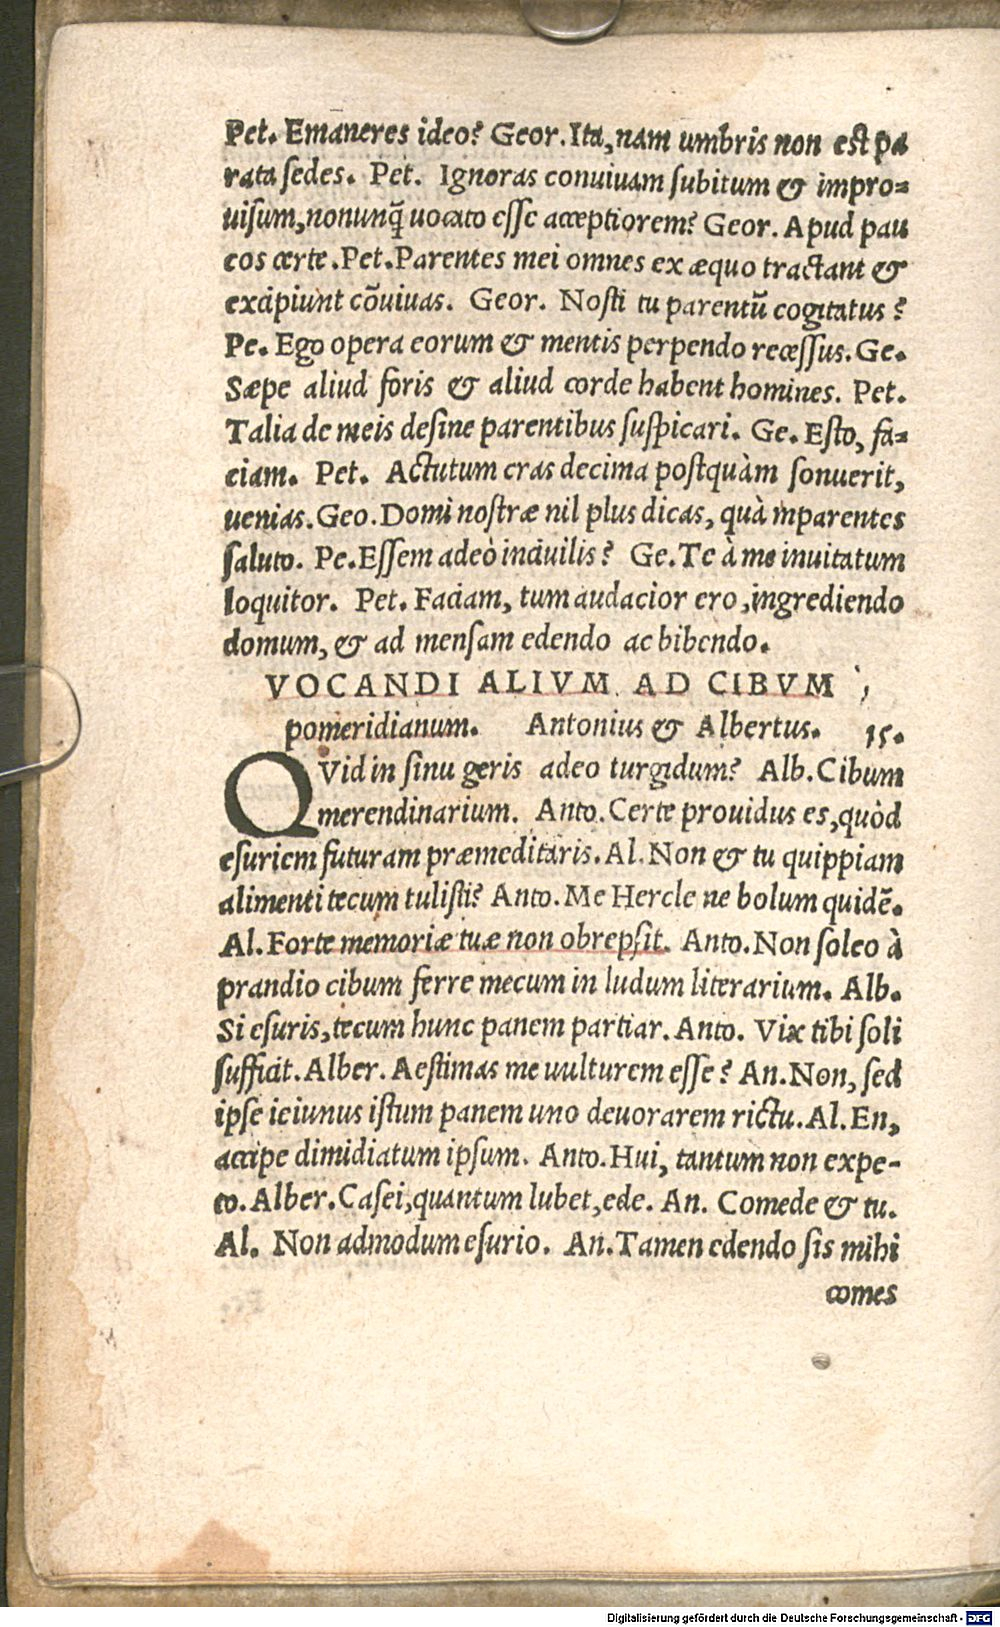 Pet. Emaneres ideo? Geor. Ita, nam umbris non est pa
rata sedes. Pet. Ignoras conuiuam subitum & impro=
uisum, nonunq̃ uocato esse acceptiorem? Geor. Apud pau
cos certe. Pet. Parentes mei omnes ex æquo tractant &
excipiunt cõuiuas. Geor. Nosti tu parentũ cogitatus?
Pe. Ego opera eorum & mentis perpendo recessus. Ge.
Sæpe aliud foris & aliud corde habent homines. Pet.
Talia de meis desine parentibus suspicari. Ge. Esto, fa=
ciam. Pet. Actutum cras decima postquàm sonuerit,
uenias. Geo. Domi nostræ nil plus dicas, quà mparentes
saluto. Pe. Essem adeò inciuilis? Ge. Te à me inuitatum
loquitor. Pet. Faciam, tum audacior ero, ingrediendo
domum, & ad mensam edendo ac bibendo.
VOCANDI ALIVM AD CIBVM
pomeridianum. Antonius & Albertus. 15.
QVid in sinu geris adeo turgidum? Alb. Cibum
merendinarium. Anto. Certe prouidus es, quòd
esuriem futuram præmeditaris. Al. Non & tu quippiam
alimenti tecum tulisti? Anto. Me Hercle ne bolum quidẽ.
Al. Forte memoriæ tuæ non obrepsit. Anto. Non soleo à
prandio cibum ferre mecum in ludum literarium. Alb.
Si esuris, tecum hunc panem partiar. Anto. Vix tibi soli
sufficit. Alber. Aestimas me uulturem esse? An. Non, sed
ipse ieiunus istum panem uno deuorarem rictu. Al. En,
accipe dimidiatum ipsum. Anto. Hui, tantum non expe-
to. Alber. Casei, quantum lubet, ede. An. Comede & tu.
Al. Non admodum esurio. An. Tamen edendo sis mihi
comes
Digitalisierung gefördert durch die Deutsche Forschungsgemeinschaft - DFG